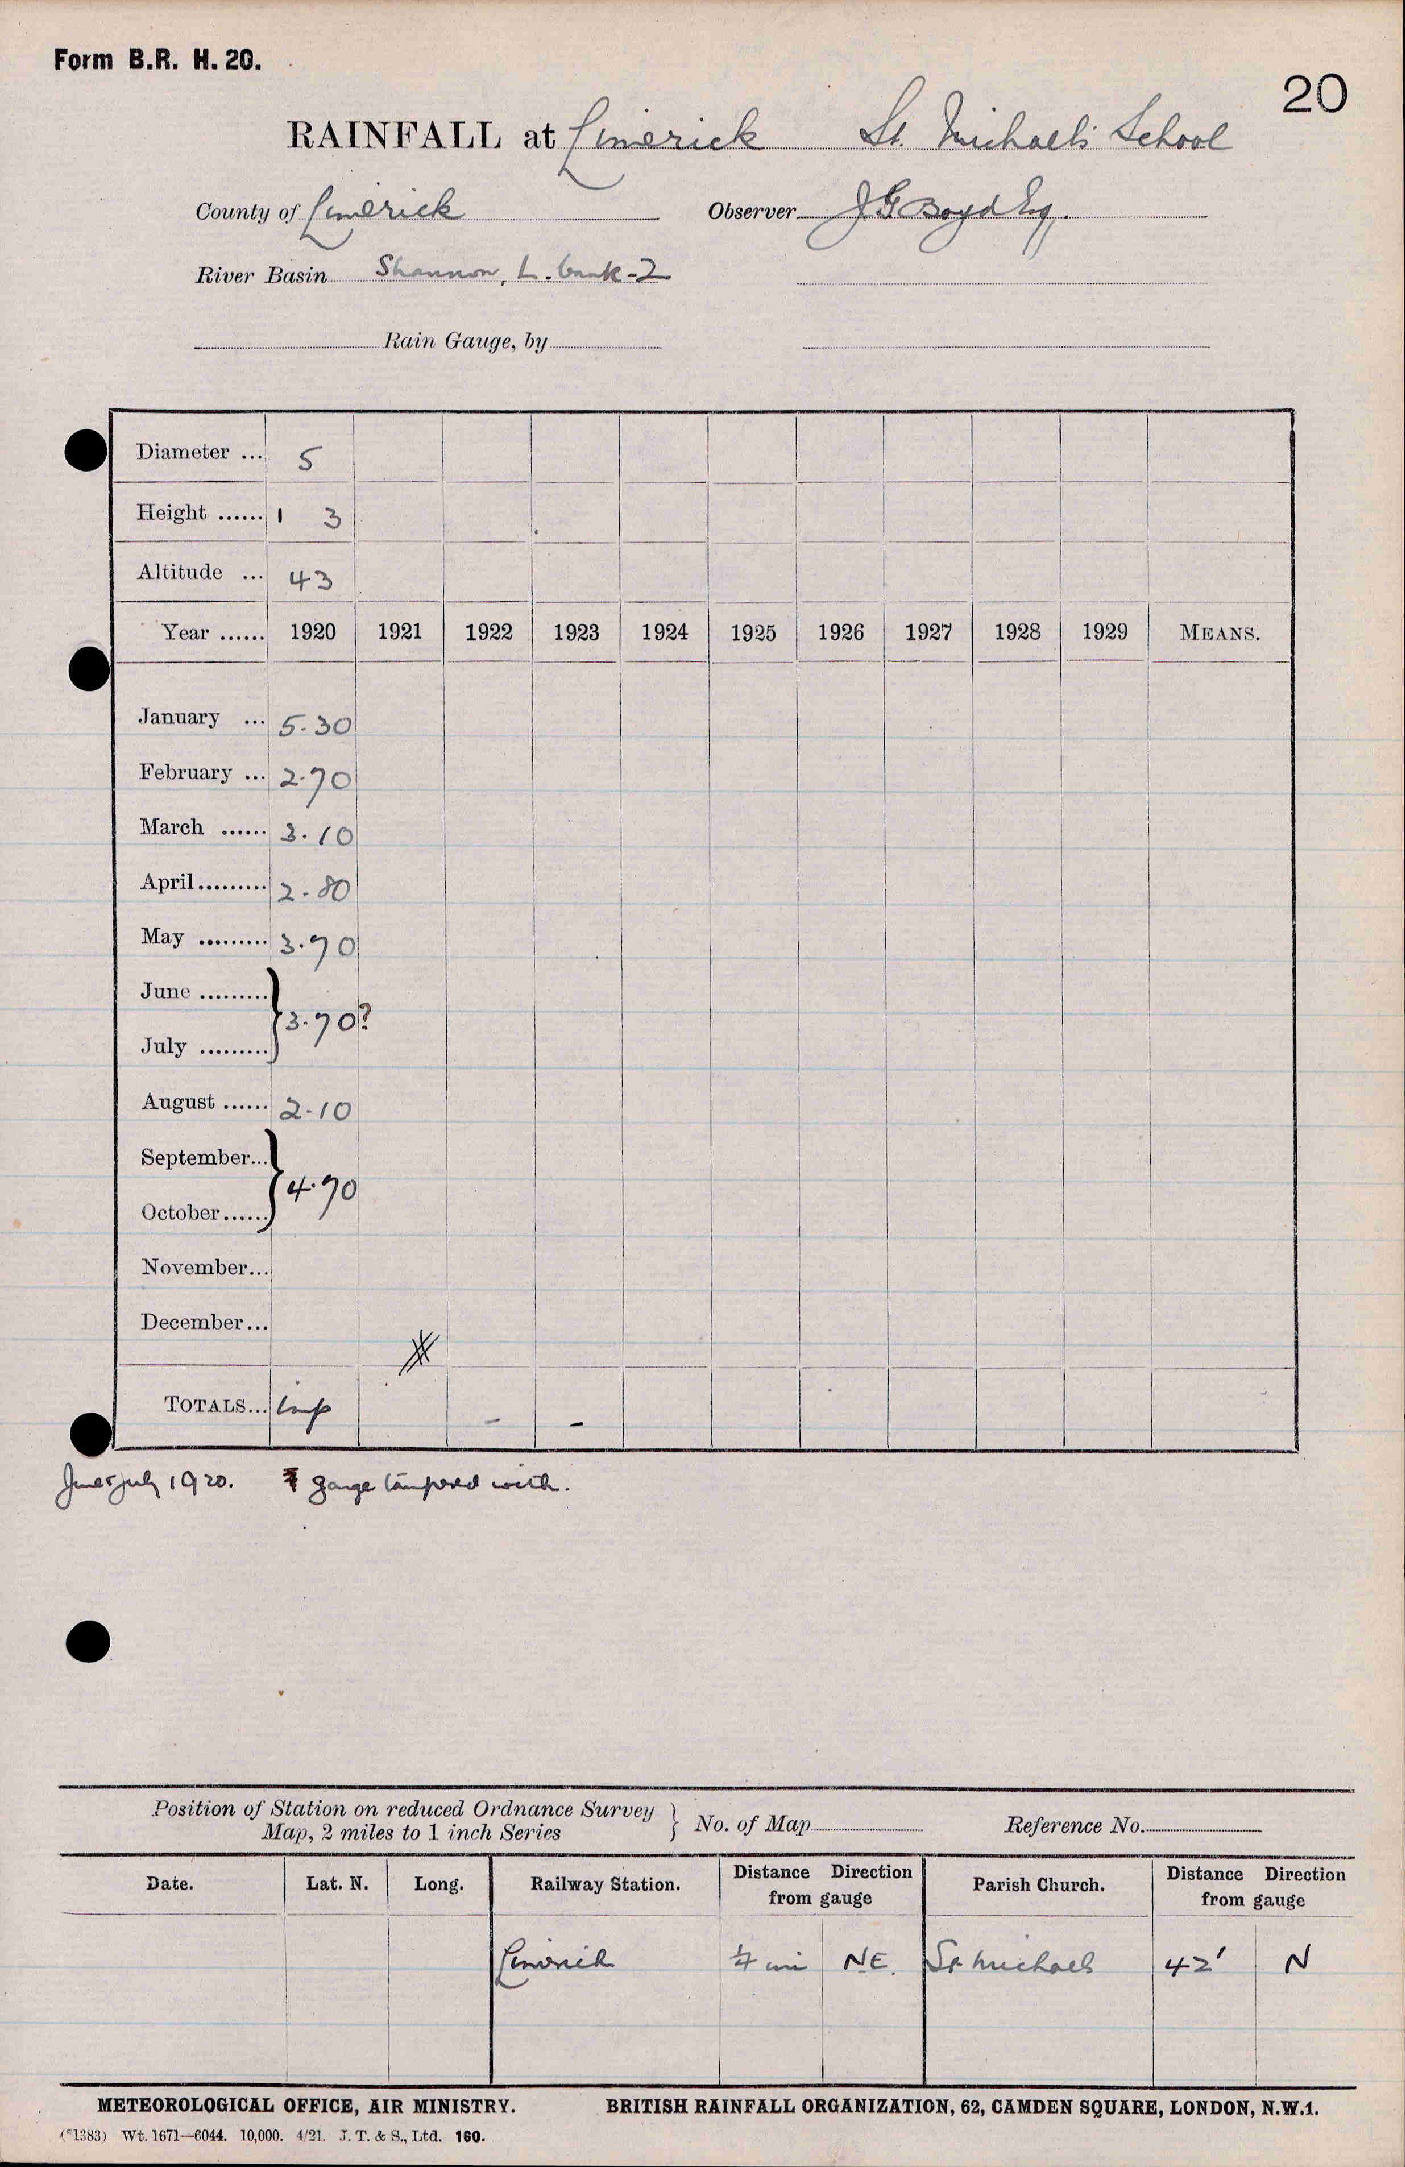 Form B.R. H. 20.
20
RAINFALL at Limerick St. Michael's School
County of Limerick Observer J G Boyd Esq.
River Basin Shannon, L. bank - 2
Rain Gauge, by
Diameter ... 5
Height ...... 1 3
Altitude ... 43
Year ...... 1920 1921 1922 1923 1924 1925 1926 1927 1928 1929 MEANS.
January ... 5.30
February ... 2.70
March ...... 3.10
April ......... 2.80
May ......... 3.70
June .........
} 3.70?
July .........
August ...... 2.10
September...
} 4.70
October......
November...
December...
TOTALS... imp - -
June & July 1920. gauge tampered with.
Position of Station on reduced Ordnance Survey
Map, 2 miles to 1 inch Series } No. of Map Reference No.
Date. Lat. N. Long. Railway Station. Distance Direction from gauge Parish Church. Distance Direction from gauge
Limerick ¼ mi NE. St Michaels 42' N
METEOROLOGICAL OFFICE, AIR MINISTRY. BRITISH RAINFALL ORGANIZATION, 62, CAMDEN SQUARE, LONDON, N.W.1.
(*1383) Wt. 1671—6044. 10,000. 4/21. J. T. & S., Ltd. 160.